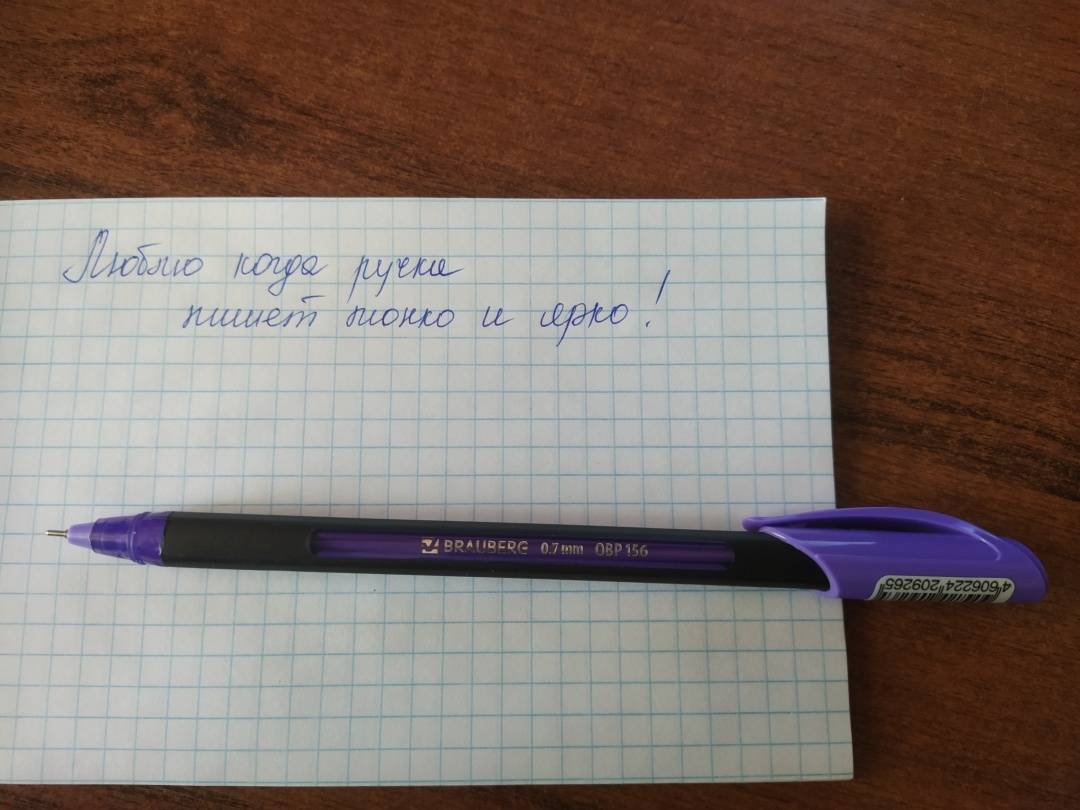 Люблю когда ручка
пишет тонко и ярко!
BRAUBERG 0.7 mm OBP 156
4 606224 209265